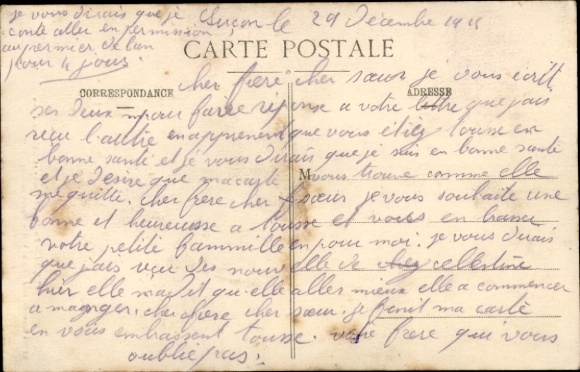 je vous dirais que je
conte aller en permission
au premier de lan
pour 4 jours
Luçon le 29 Décembre 1915
CARTE POSTALE
CORRESPONDANCE
ADRESSE
cher frere cher sœur je vous écrit
ses deux mpour faire réponse a votre lettre que jais
reçu l'autre en apprenent que vous étiez tousse en
bonne santé et je vous dirais que je suis en bonne santé
et je desire que ma carte M vous trouve comme elle
me quitte. cher frere cher sœur je vous souhaite une
bonne et heureusse a tousse et vous en brasser
votre petite fammille en pour moi. je vous dirais
que jais reçu des nouvelle de chez celestine
hier elle ma dit qu-elle aller mieux elle a commencer
a manger. cher frere cher sœur je finit ma carte
en vous embrassent tousse. votre frere qui vous
oublie pas.